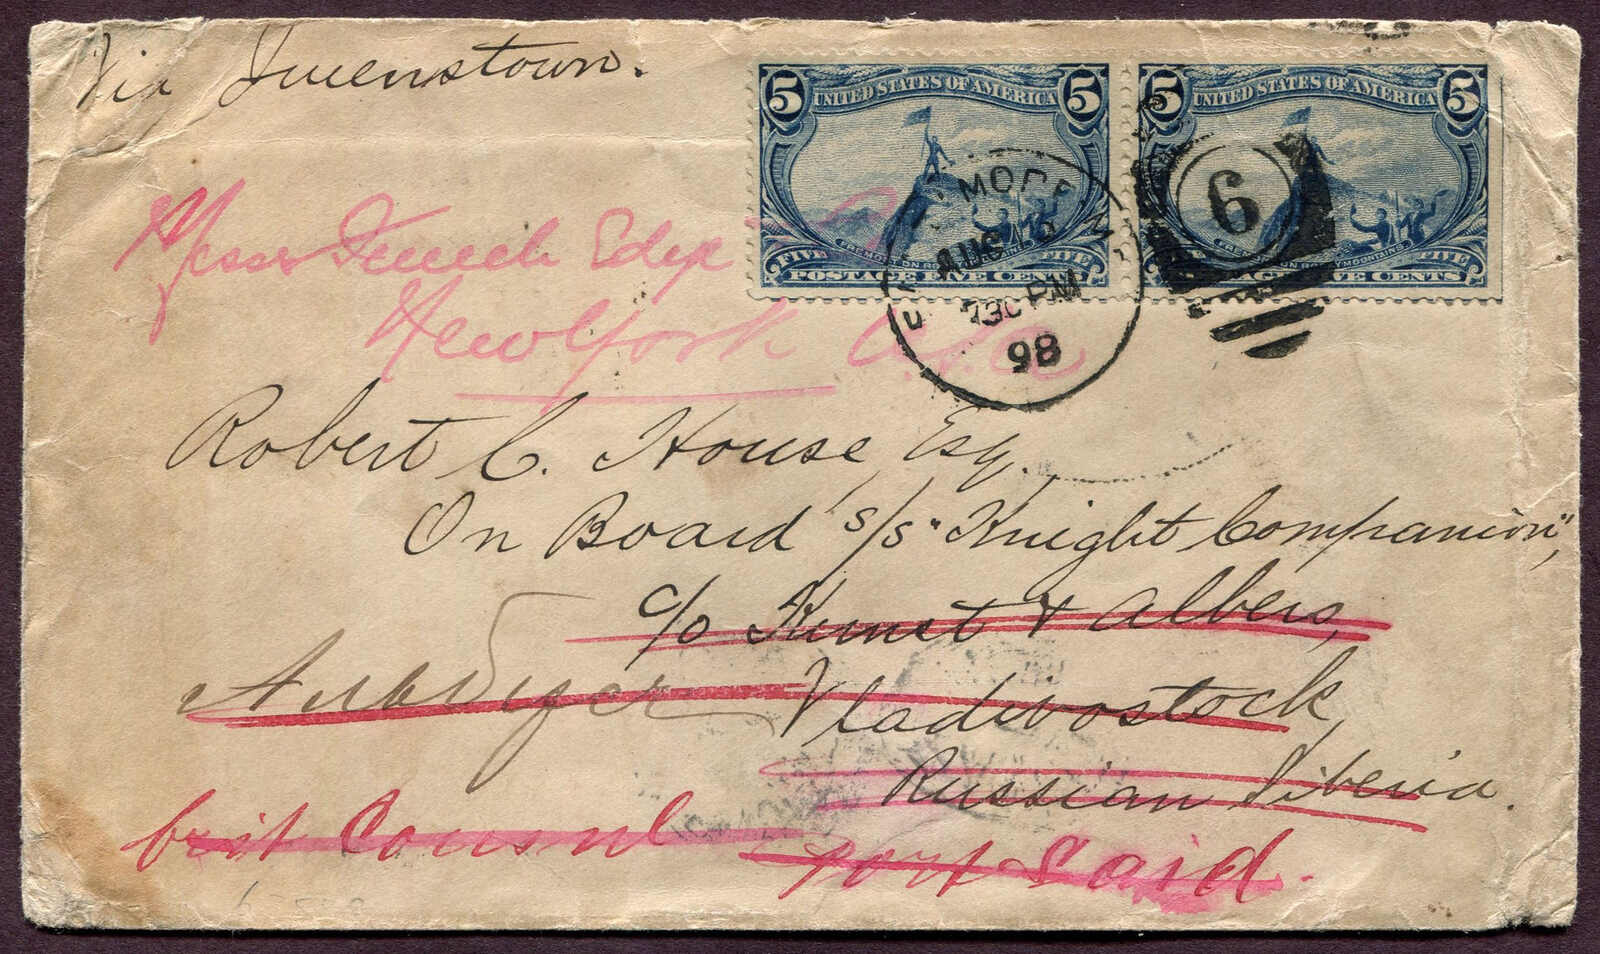 Via Queenstown.
5 UNITED STATES OF AMERICA 5
FREMONT ON ROCKY MOUNTAINS
FIVE FIVE
POSTAGE FIVE CENTS
5 UNITED STATES OF AMERICA 5
FREMONT ON ROCKY MOUNTAINS
FIVE
POSTAGE FIVE CENTS
AUG
730 PM
98
6
Messrs Funch Edye
New York U.S.a
Robert C. House, Esq.
On Board s/s "Knight Companion",
c/o Kunst & Albers,
Vladivostock,
Russian Siberia.
brit Consul Port Said.